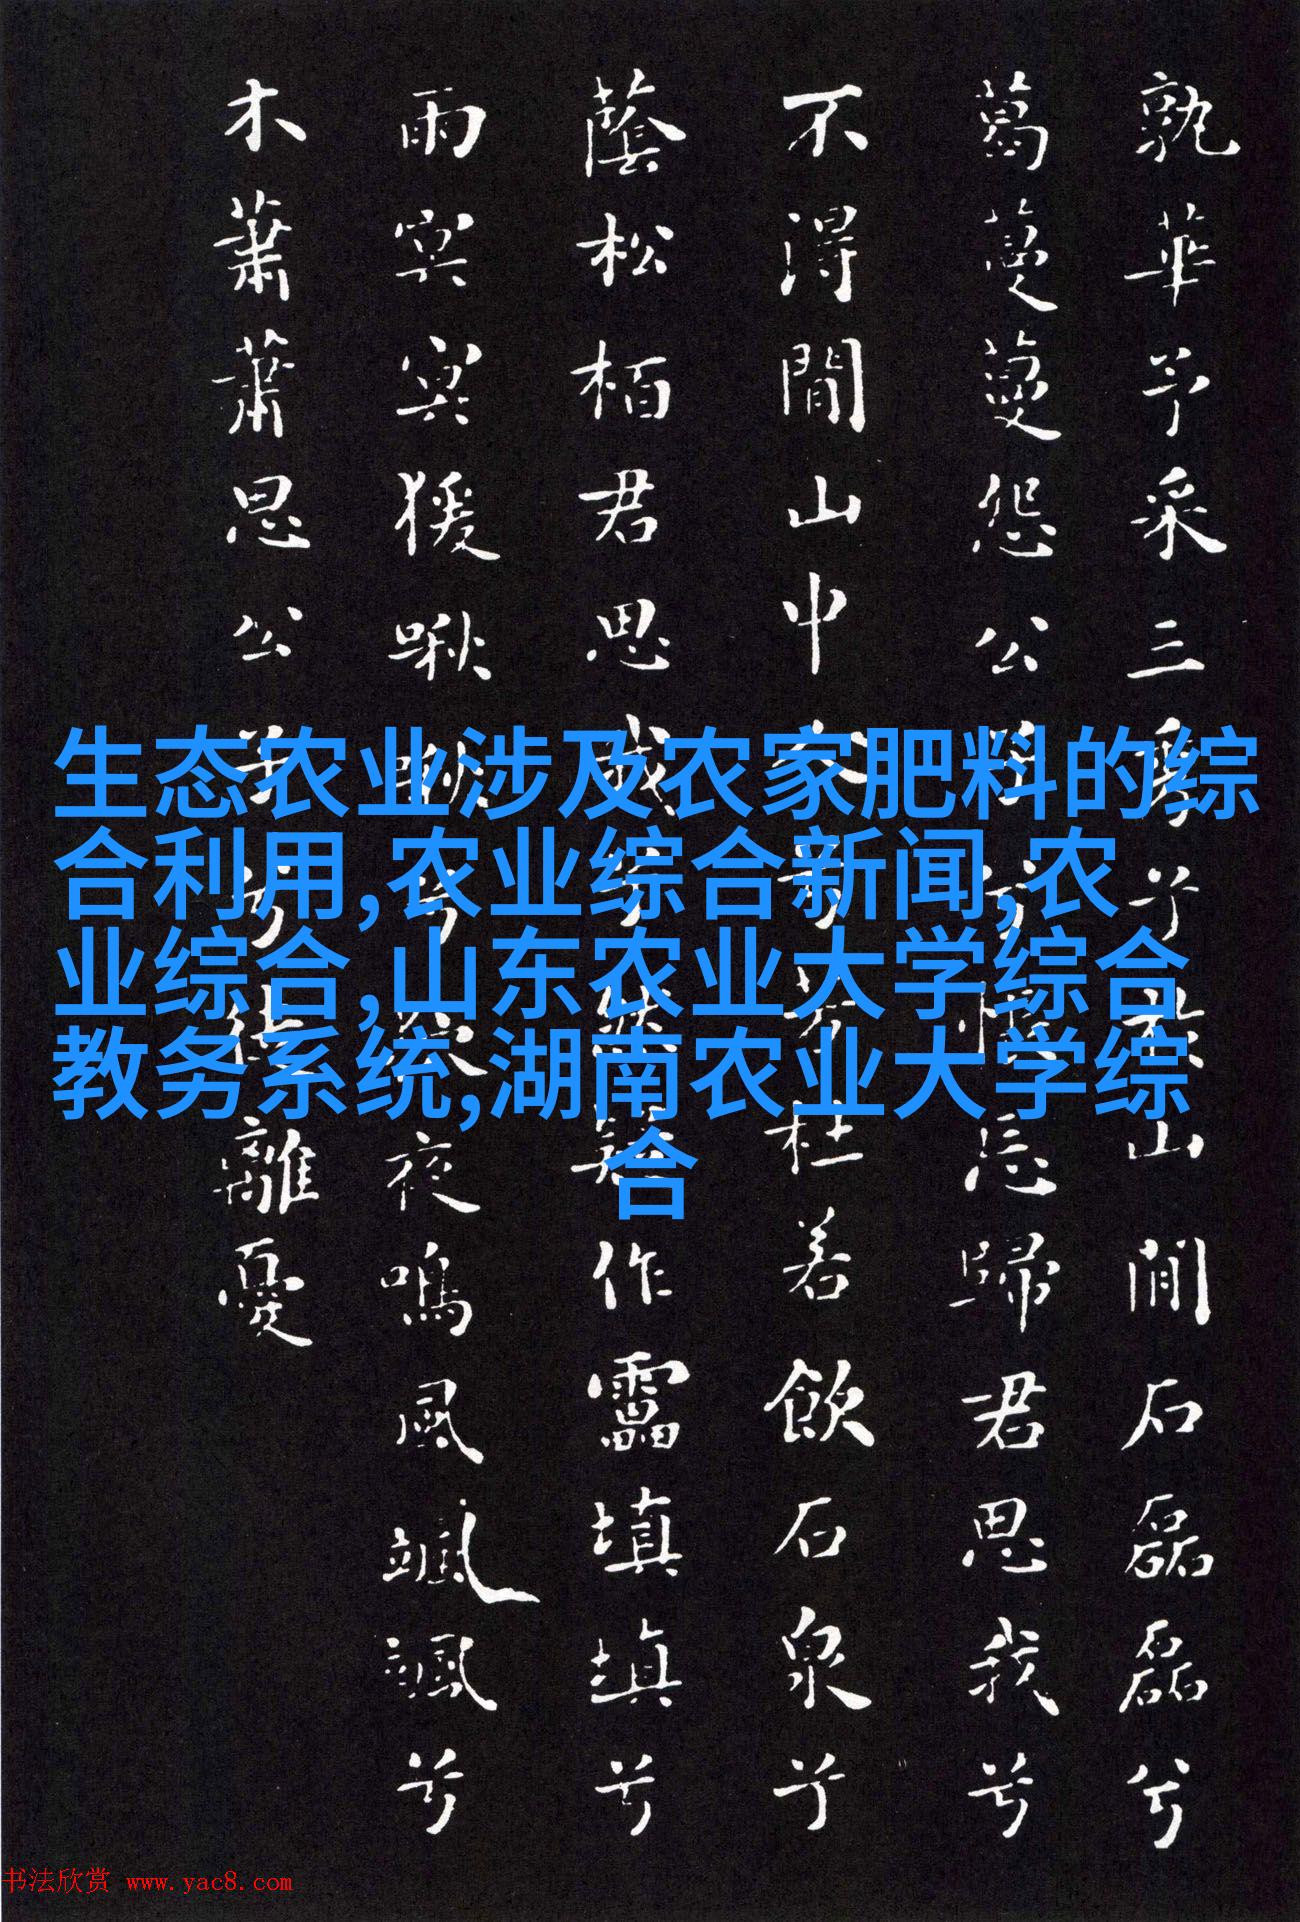 孰華予采三秀兮於山閒石磊磊兮
葛蔓蔓怨公子兮悵忘歸君思我兮
不得閒山中人兮芳杜若飲石泉兮
蔭松栢君思我兮然疑作靁填填兮
雨冥冥猨啾啾兮狖夜鳴風颯颯兮
木蕭蕭思公子兮徒離憂
生态农业涉及农家肥料的综
合利用,农业综合新闻,农
业综合,山东农业大学综合
教务系统,湖南农业大学综
合
书法欣赏 www.yac8.com